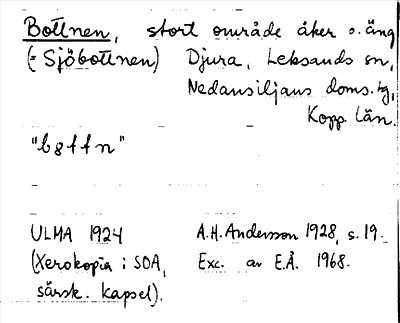 Bottnen, stort område åker o. äng
(= Sjöbottnen) Djura, Leksands sn,
Nedansiljans doms.tg,
Kopp. län.
"bottn"
ULMA 1924 A.H. Andersson 1928, s. 19.
(Xerokopia i SOA, Exc. av E.Å. 1968.
särsk. kapsel).